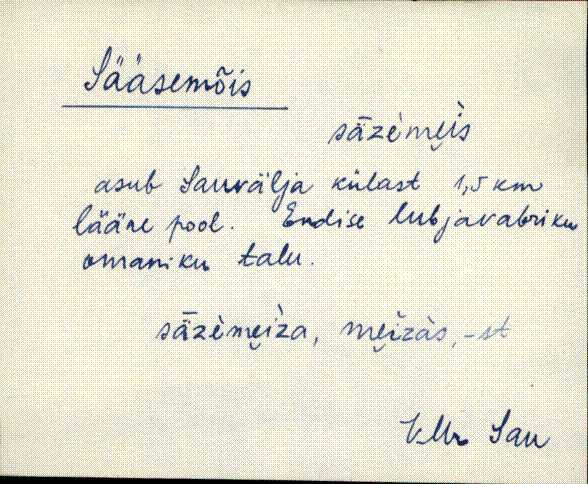 Sääsemõis
säzèmẹìs
asub Sauvälja külast 1,5 km
lääne pool. Endise lubjavabriku
omaniku talu.
sāzèmẹìza, mẹìzàs, -st
VMr Sau